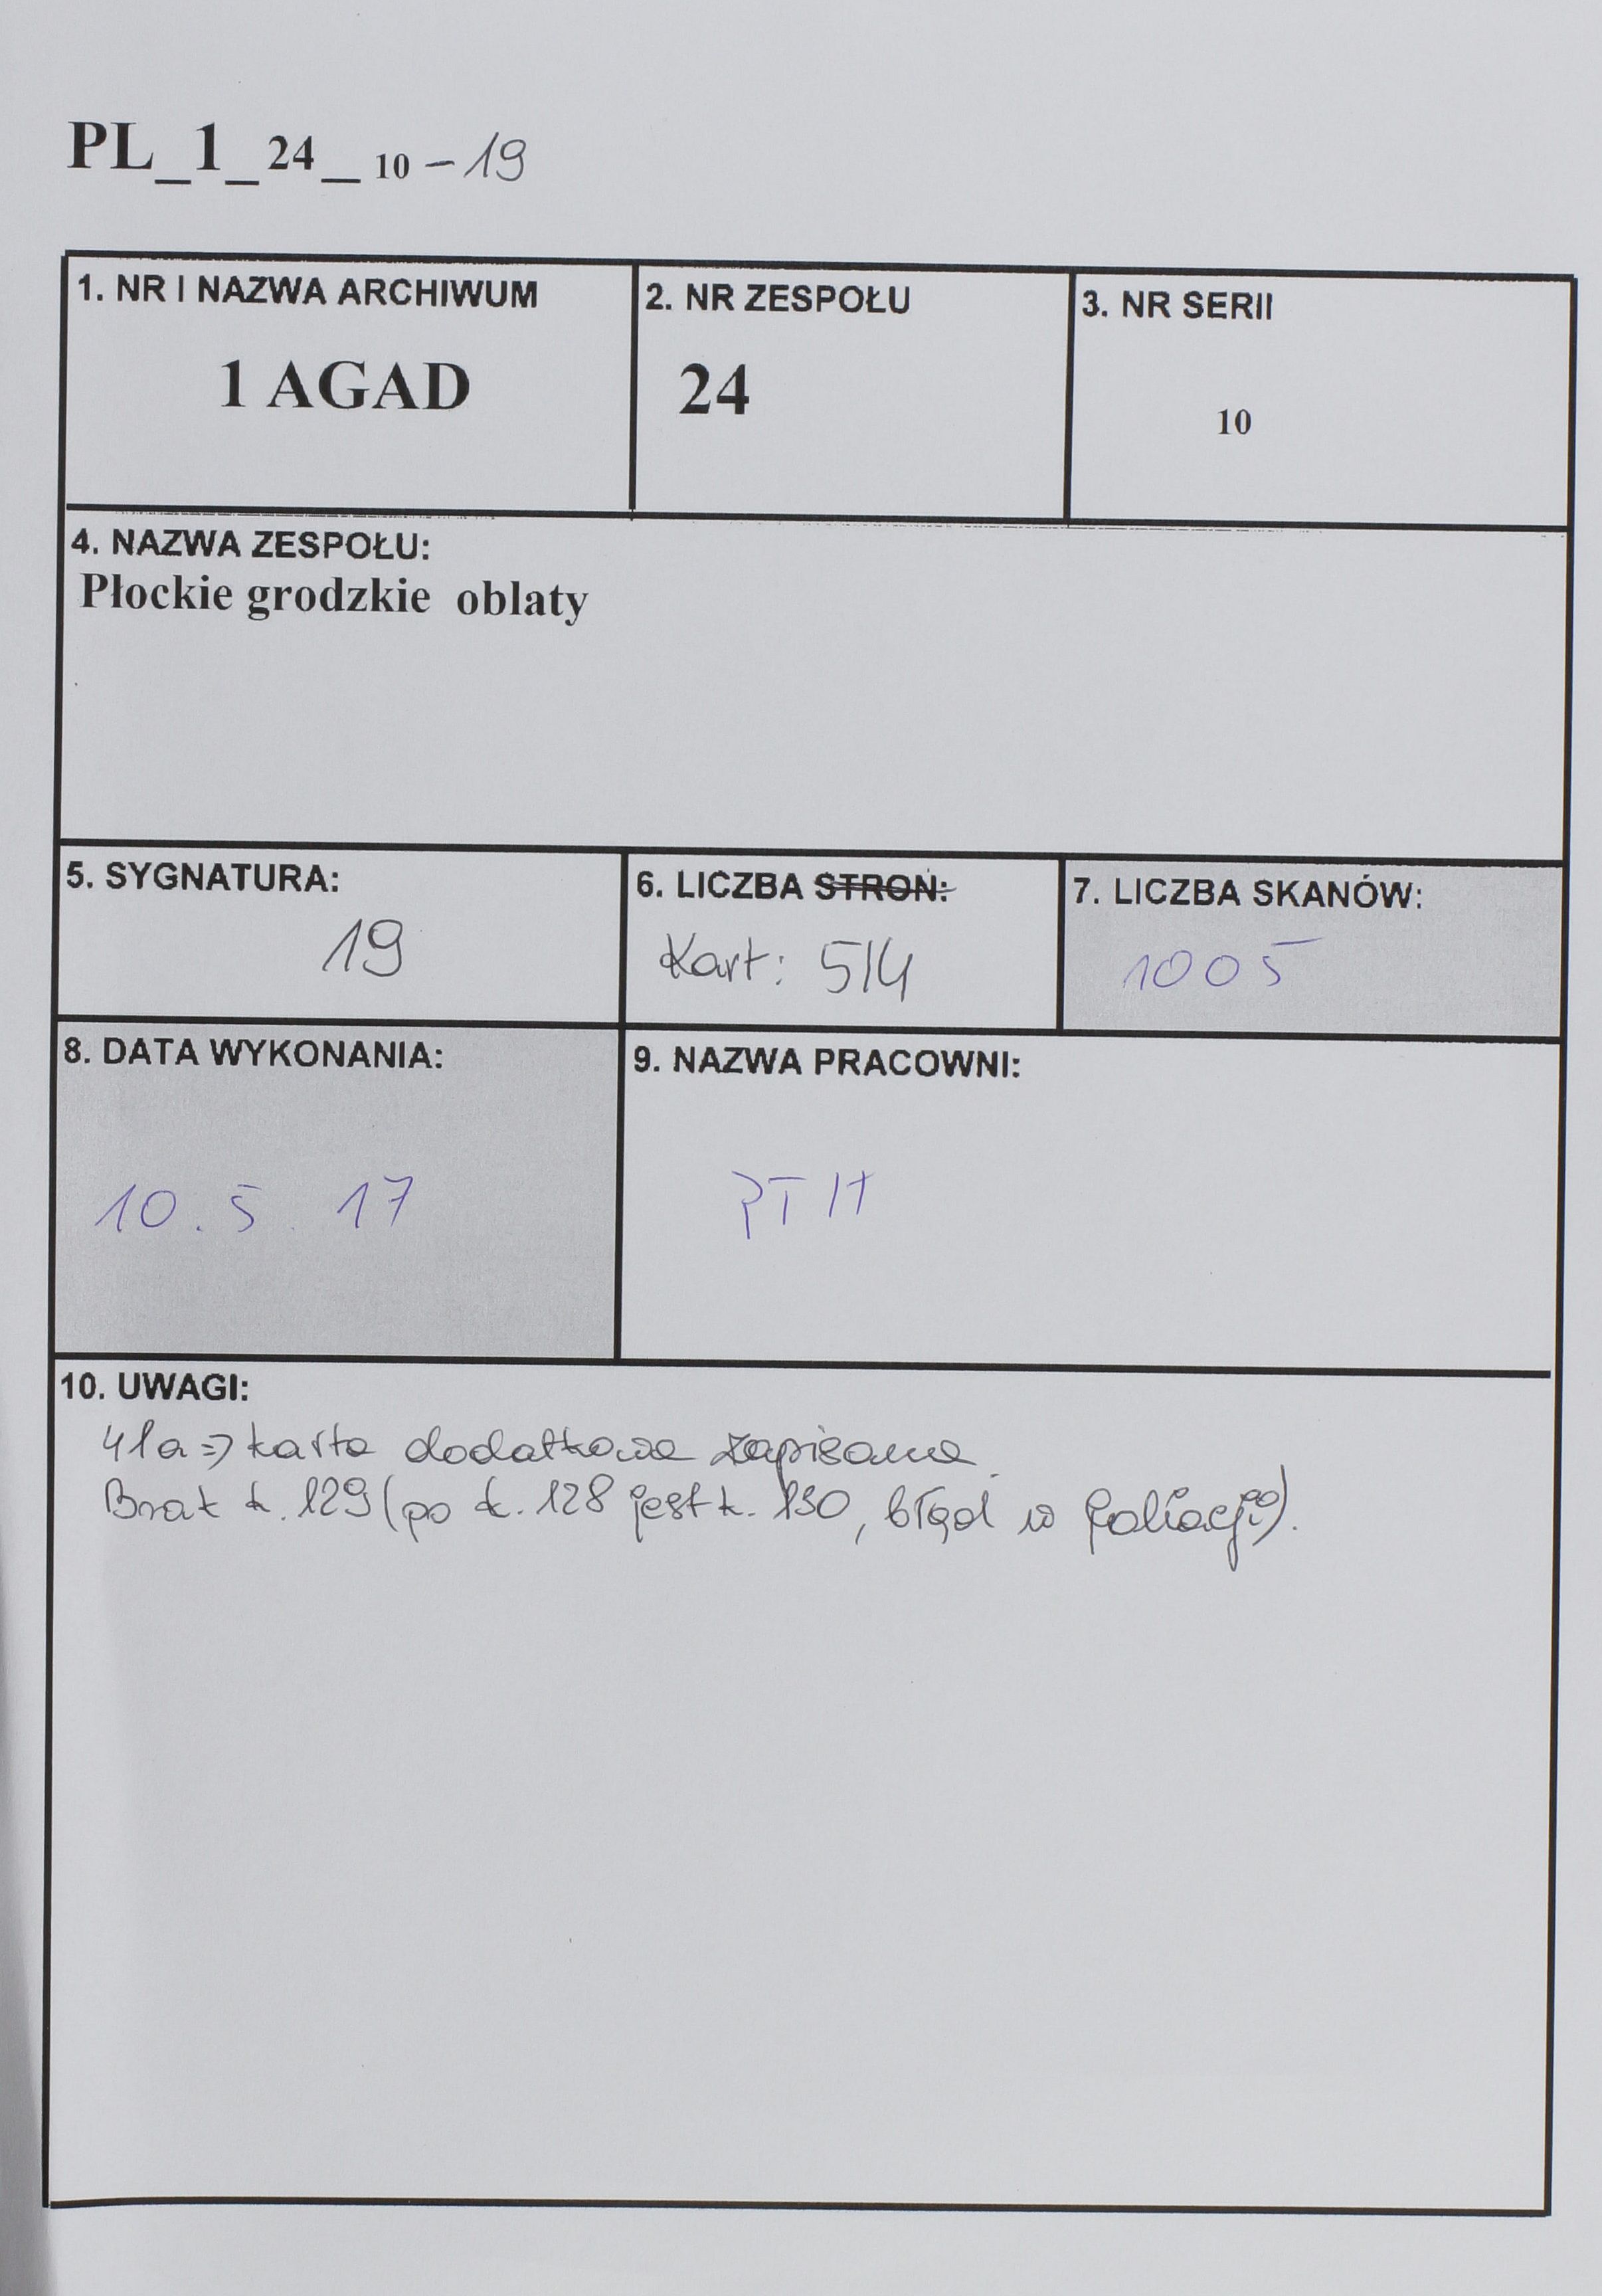 PL_1_24_10-19
1. NR I NAZWA ARCHIWUM
1 AGAD
2. NR ZESPOŁU
24
3. NR SERII
10
4. NAZWA ZESPOŁU:
Płockie grodzkie oblaty
5. SYGNATURA:
19
6. LICZBA STRON:
Kart: 514
7. LICZBA SKANÓW:
1005
8. DATA WYKONANIA:
10.5.17
9. NAZWA PRACOWNI:
PTH
10. UWAGI:
41a => karta dodatkowa zapisana.
Brak k. 129 (po k. 128 jest k. 130, błąd w foliacji).